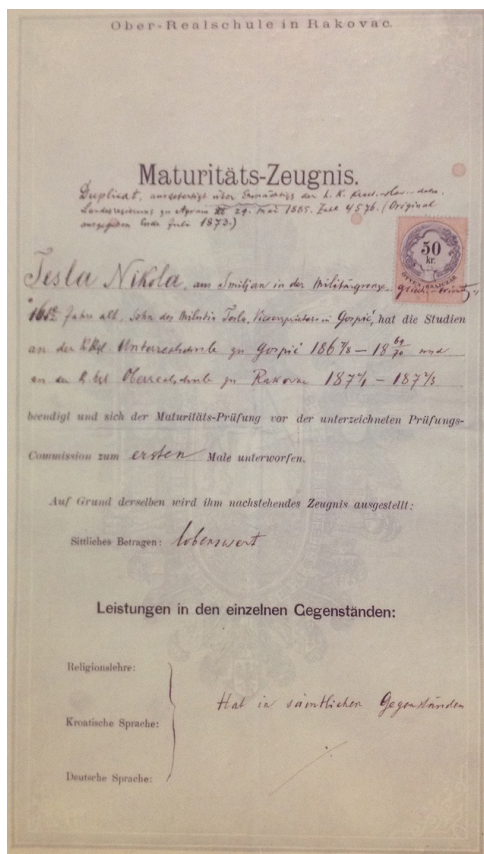 Ober-Realschule in Rakovac.
Maturitäts-Zeugnis.
Duplicat, ausgefertigt über Ermächtigung der k. K.
Landesregierung zu Agram 29. Mai 1885. Zahl 4576. (Original
ausgegeben Ende Juli 1873.)
50
kr.
Tesla Nikola, aus Smiljan in der Militärgrenze,
Jahre alt, Sohn des Milutin Tesla, in Gospić, hat die Studien
an der Unterrealschule zu Gospić 1867/8 — 18 69/70 und
an der Oberrealschule zu Rakovac 187 — 1872/3
beendigt und sich der Maturitäts-Prüfung vor der unterzeichneten Prüfungs-
Commission zum ersten Male unterworfen.
Auf Grund derselben wird ihm nachstehendes Zeugnis ausgestellt:
Sittliches Betragen: lobenswert
Leistungen in den einzelnen Gegenständen:
Religionslehre:
Kroatische Sprache:
Hat in sämtlichen Gegenständen
Deutsche Sprache: